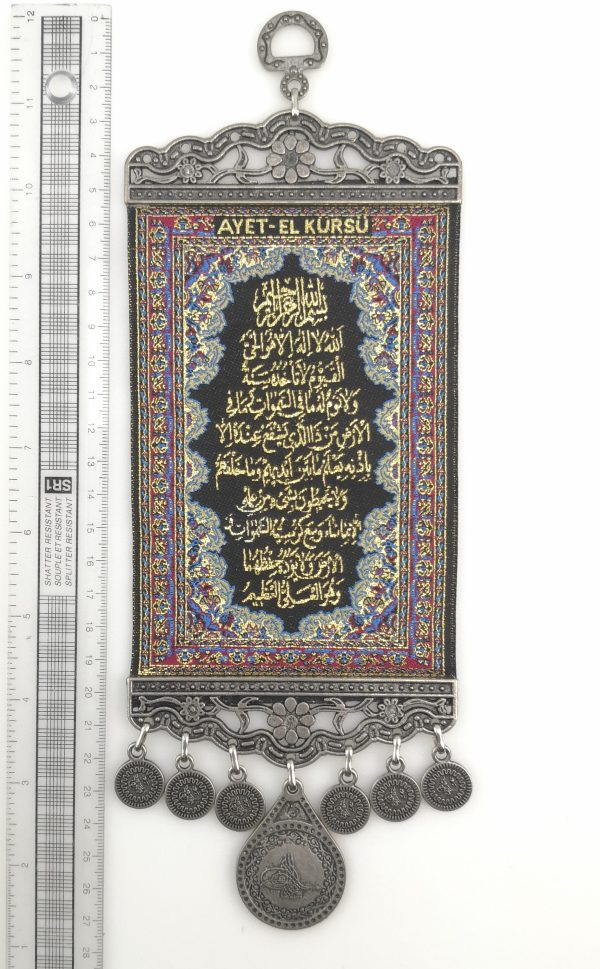 AYET-EL KÜRSÜ
بسم الله الرحمن الرحيم
الله لا اله الا هو الحي
القيوم لا تأخذه سنة
ولا نوم له ما في السموات وما في
الارض من ذا الذي يشفع عنده الا
باذنه يعلم ما بين ايديهم وما خلفهم
ولا يحيطون بشيء من علمه
الا بما شاء وسع كرسيه السموات و
الارض ولا يؤده حفظهما
وهو العلي العظيم
SR1
SHATTER RESISTANT
SOUPLE ET RESISTANT
SPLITTER RESISTANT
12 11 10 9 8 7 6 5 4 3 2 1
0 1 2 3 4 5 6 7 8 9 10 11 12 13 14 15 16 17 18 19 20 21 22 23 24 25 26 27 28